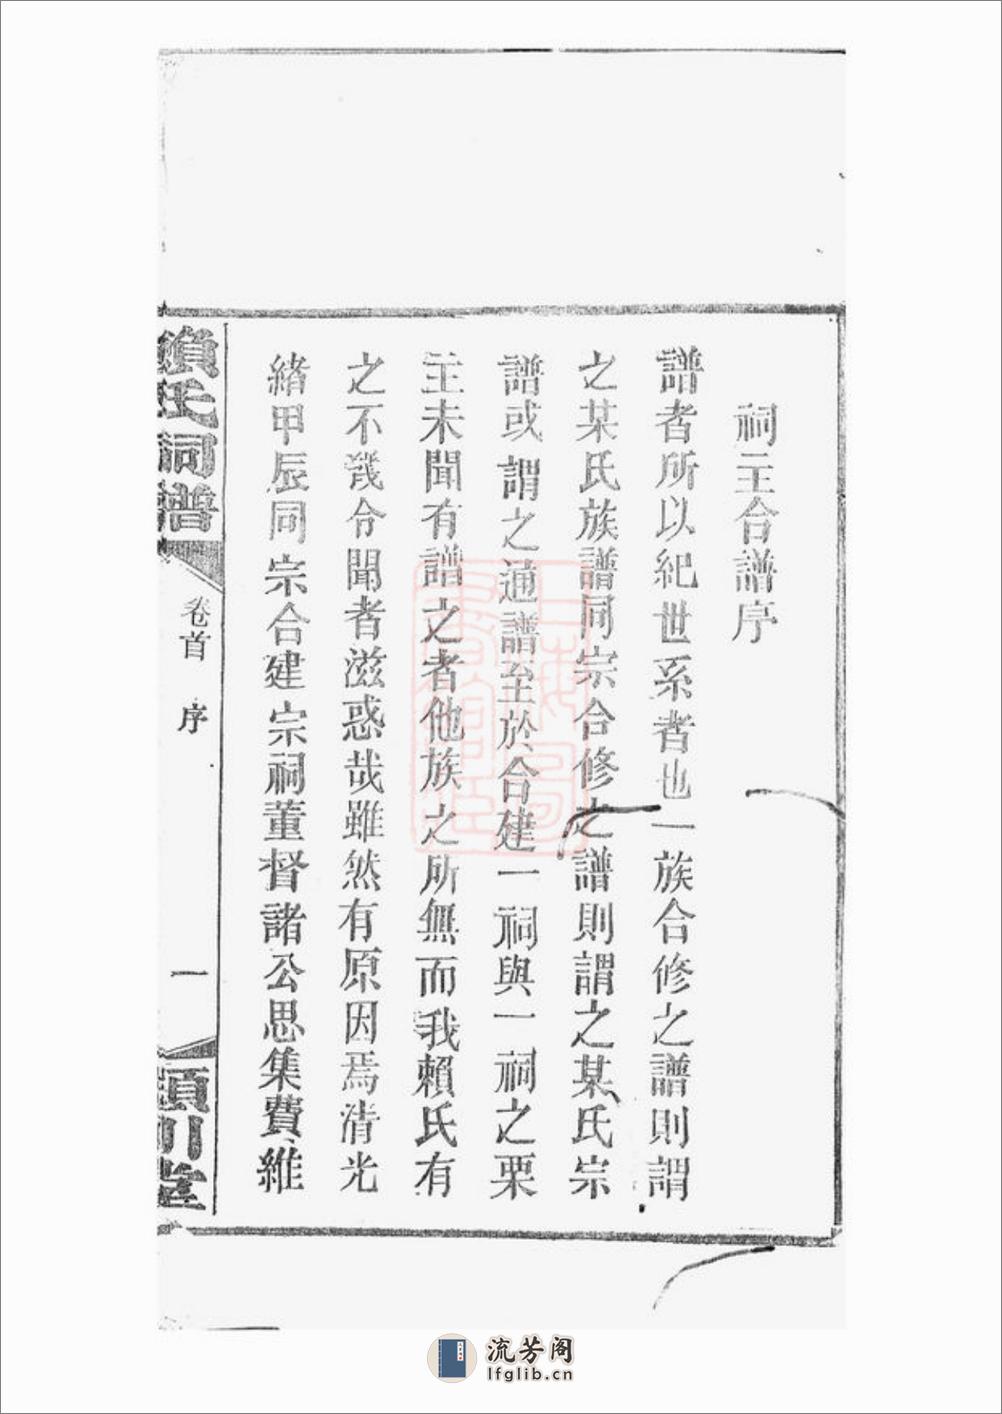 祠主合譜序
譜者所以紀世系者也一族合修之譜則謂
之某氏族譜同宗合修之譜則謂之某氏宗
譜或謂之通譜至於合建一祠與一祠之栗
主未聞有譜之者他族之所無而我賴氏有
之不幾令聞者滋惑哉雖然有原因焉清光
緒甲辰同宗合建宗祠董督諸公思集費維
賴氏祠譜
卷首
序
一
潁川堂
流芳阁
lfglib.cn